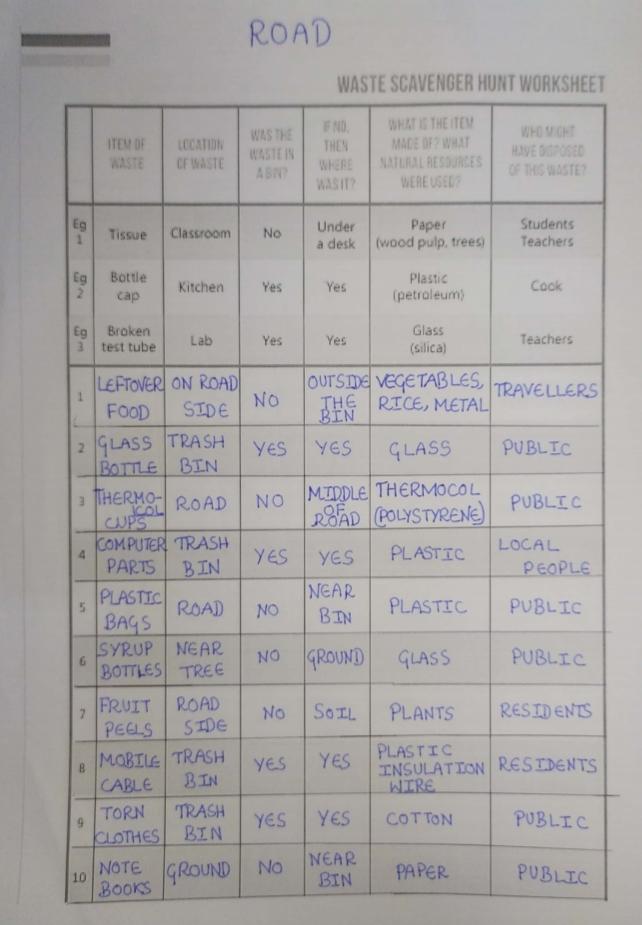 ROAD
WASTE SCAVENGER HUNT WORKSHEET
ITEM OF WASTE | LOCATION OF WASTE | WAS THE WASTE IN A BIN? | IF NO, THEN WHERE WAS IT? | WHAT IS THE ITEM MADE OF? WHAT NATURAL RESOURCES WERE USED? | WHO MIGHT HAVE DISPOSED OF THIS WASTE?
Eg 1 | Tissue | Classroom | No | Under a desk | Paper (wood pulp, trees) | Students Teachers
Eg 2 | Bottle cap | Kitchen | Yes | Yes | Plastic (petroleum) | Cook
Eg 3 | Broken test tube | Lab | Yes | Yes | Glass (silica) | Teachers
1 | LEFTOVER FOOD | ON ROAD SIDE | NO | OUTSIDE THE BIN | VEGETABLES, RICE, METAL | TRAVELLERS
2 | GLASS BOTTLE | TRASH BIN | YES | YES | GLASS | PUBLIC
3 | THERMO-ICOL CUPS | ROAD | NO | MIDDLE OF ROAD | THERMOCOL (POLYSTYRENE) | PUBLIC
4 | COMPUTER PARTS | TRASH BIN | YES | YES | PLASTIC | LOCAL PEOPLE
5 | PLASTIC BAGS | ROAD | NO | NEAR BIN | PLASTIC | PUBLIC
6 | SYRUP BOTTLES | NEAR TREE | NO | GROUND | GLASS | PUBLIC
7 | FRUIT PEELS | ROAD SIDE | NO | SOIL | PLANTS | RESIDENTS
8 | MOBILE CABLE | TRASH BIN | YES | YES | PLASTIC INSULATION WIRE | RESIDENTS
9 | TORN CLOTHES | TRASH BIN | YES | YES | COTTON | PUBLIC
10 | NOTE BOOKS | GROUND | NO | NEAR BIN | PAPER | PUBLIC